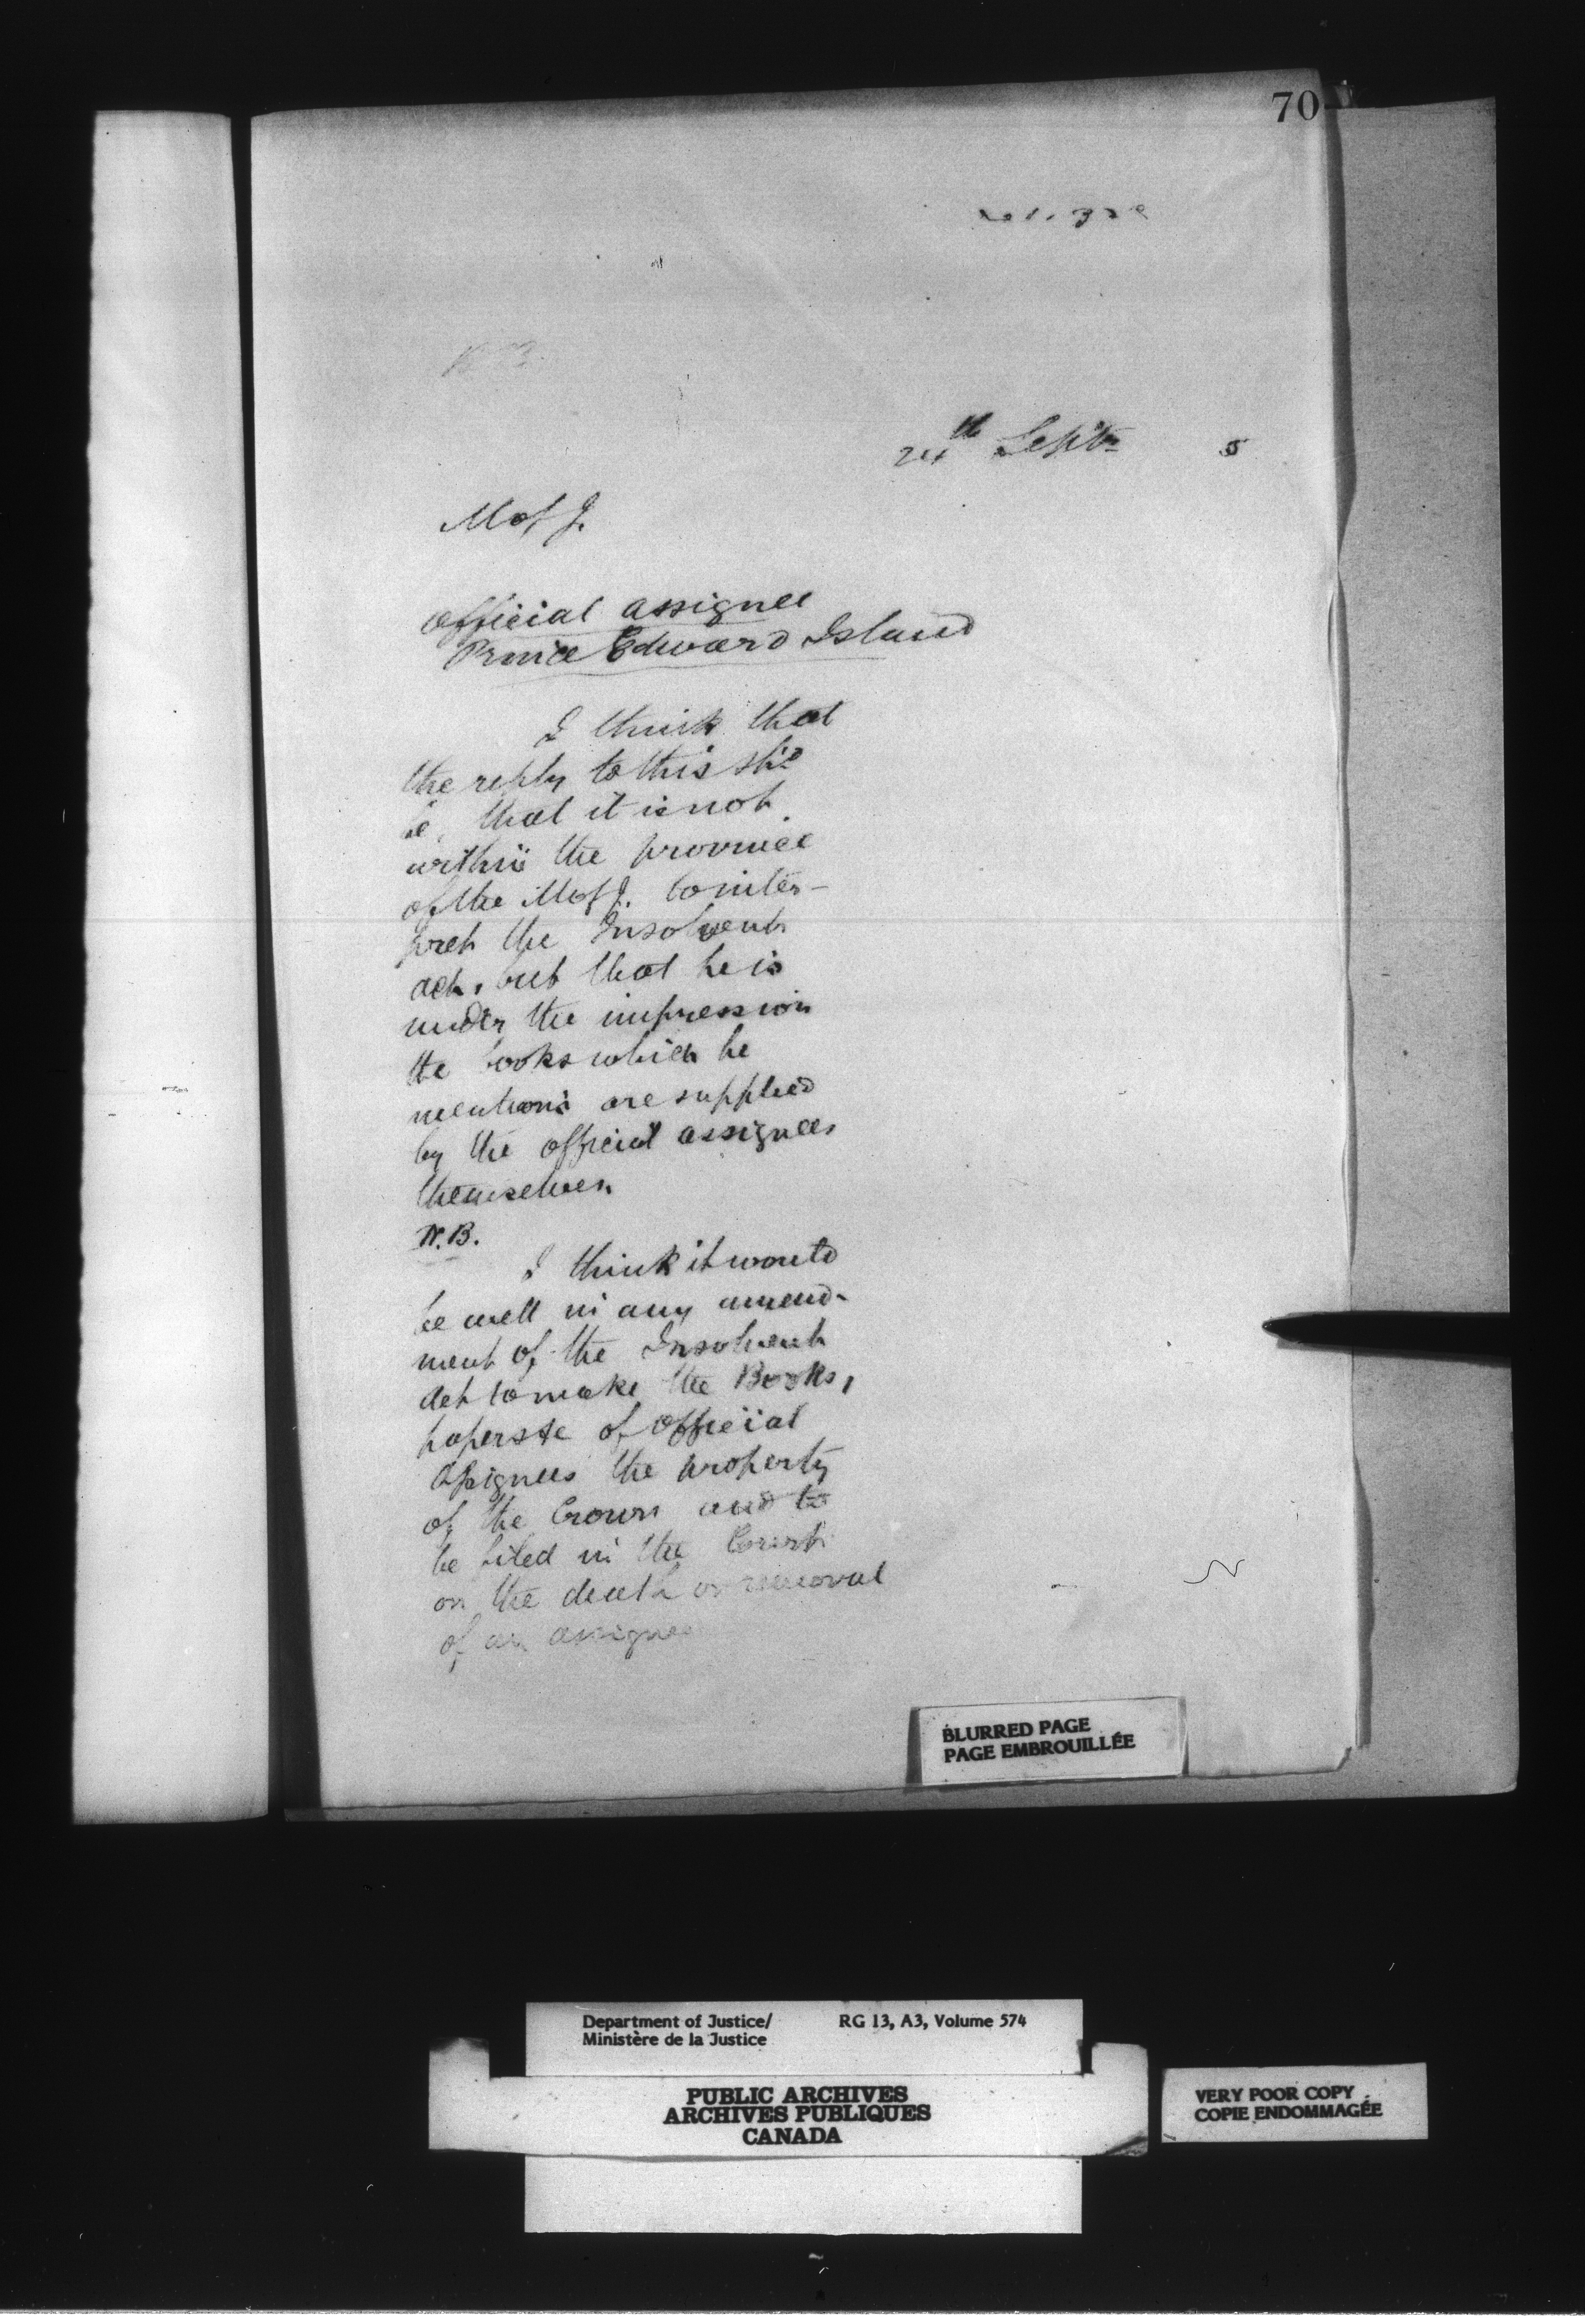 70
24th Septr 5
M of J.
Official assignee
Prince Edward Island
I think that
the reply to this shd
be, that it is not
within the province
of the M of J. to inter-
pret the Insolvent
act, but that he is
under the impression
the books which he
mentions are supplied
by the official assignees
themselves.
N.B.
I think it would
be well in any amend-
ment of the Insolvent
Act to make the Books,
papers &c of Official
Assignees the property
of the Crown and to
be filed in the Court
on the death or removal
of an assignee
BLURRED PAGE
PAGE EMBROUILLÉE
Department of Justice/ RG 13, A3, Volume 574
Ministère de la Justice
PUBLIC ARCHIVES
ARCHIVES PUBLIQUES
CANADA
VERY POOR COPY
COPIE ENDOMMAGÉE